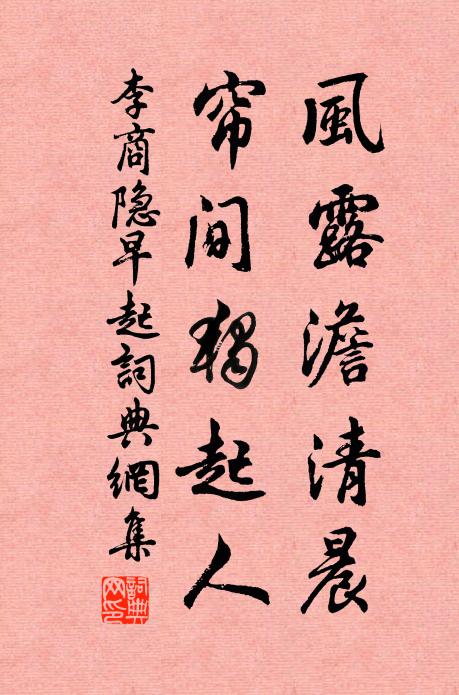 風露澹清晨
帘间獨起人
李商隐早起詞典網集
詞典网印